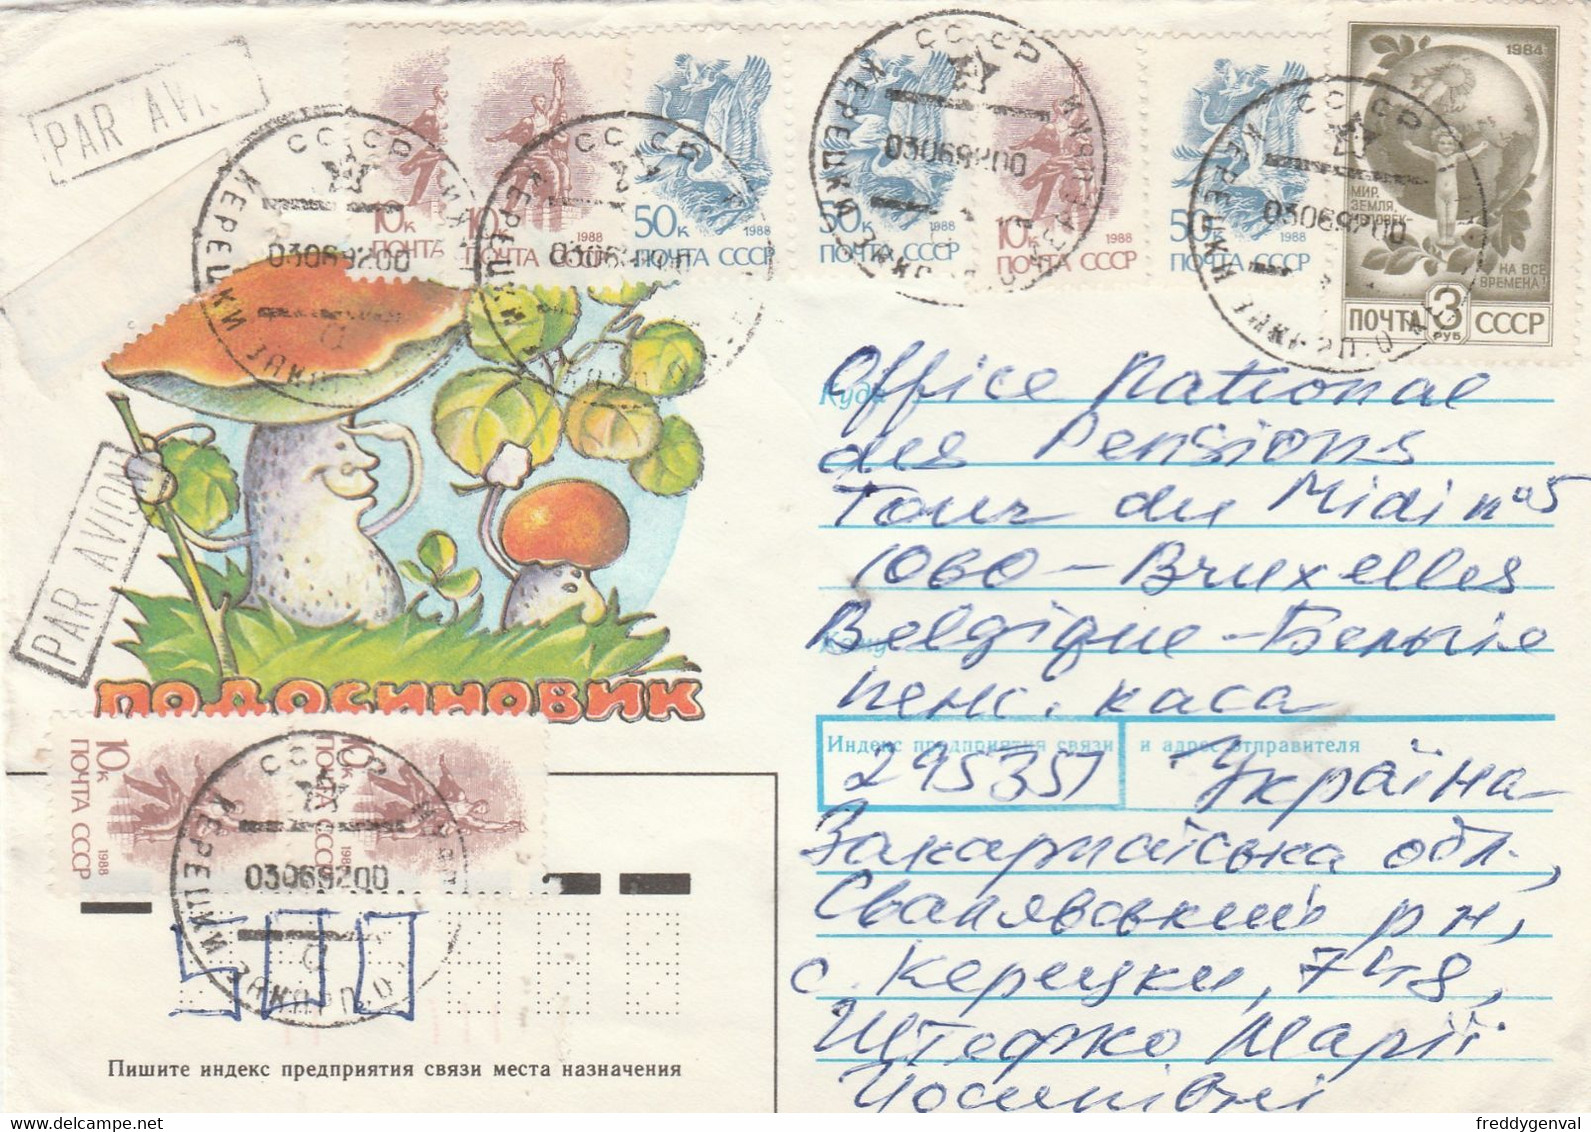 PAR AVI
10к
ПОЧТА
10к 1988
ПОЧТА СССР
50к 1988
ПОЧТА СССР
50к
ПОЧТА СССР
10к 1988
ПОЧТА СССР
50к 1988
ПОЧТА СССР
1984
МИР,
ЗЕМЛЯ,
ЧЕЛОВЕК-
НА ВСЕ
ВРЕМЕНА!
ПОЧТА 3 РУБ СССР
СССР
КЕРЕЦКИ
03069200
СССР
СССР
КЕРЕЦКИ
03069200
СССР
КЕРЕЦКИ
03069200
PAR AVION
ПОДОСИНОВИК
Куда
Office National
des Pensions
Tour du Midi n°5
1060 - Bruxelles
Кому
Belgique - Бельгія
пенс. каса
Индекс предприятия связи и адрес отправителя
295351 Україна
Закарпатська обл.,
Свалявський р-н,
с. Керецки, 748,
Штефко Марії
Йосипівні
10к 1988
ПОЧТА СССР
10к 1988
ПОЧТА СССР
СССР
КЕРЕЦКИ
03069200
Пишите индекс предприятия связи места назначения
freddygenval